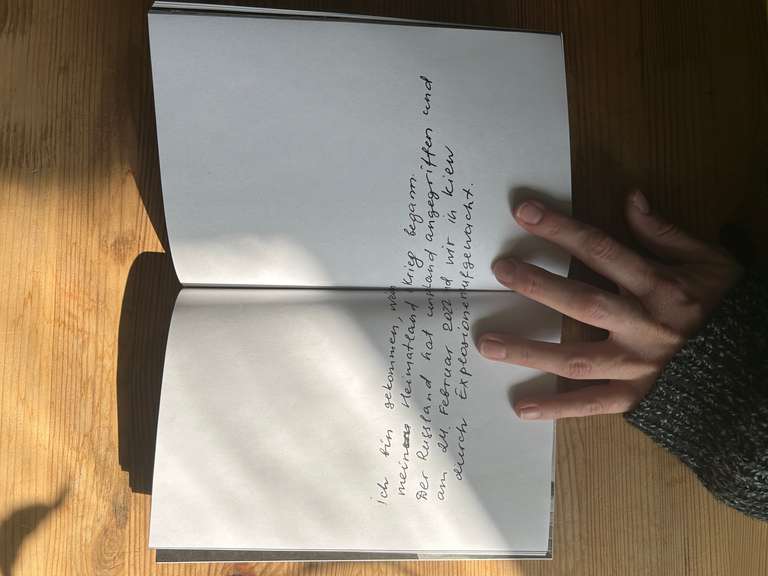 ich bin gekommen, weil
meinem Heimatland Krieg begann.
Der Russland hat unsland angegriffen und
am 24. Februar 2022 sind wir in Kiew
durch Explosionen aufgewacht.